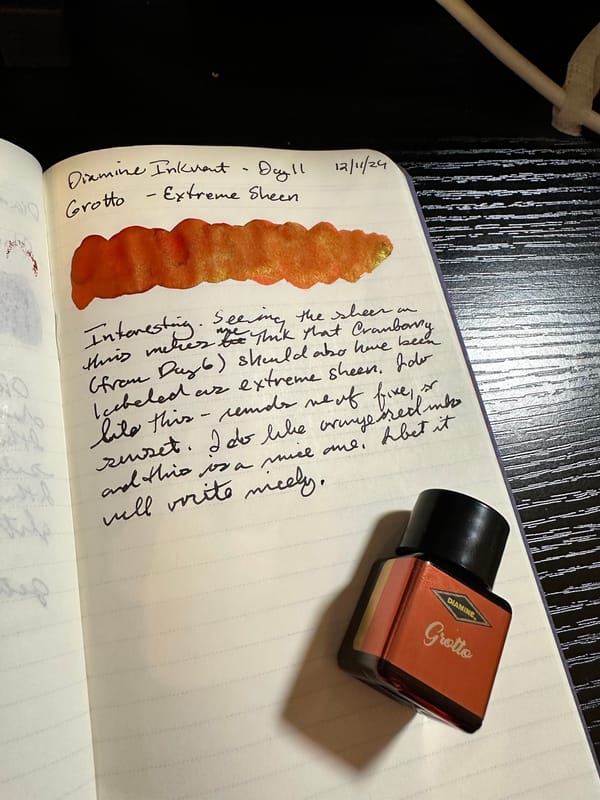 Diamine Inkvent - Day 11 12/11/24
Grotto - Extreme Sheen
Interesting. Seeing the sheen on
this makes me think that Cranberry
(from Day 6) should also have been
labeled as extreme sheen. I do
like this - reminds me of fire, or
sunset. I do like orange/red inks
and this is a nice one. I bet it
will write nicely.
DIAMINE
Grotto